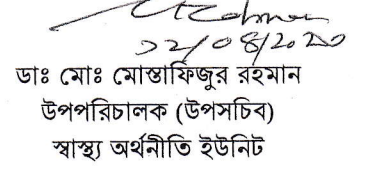 ১২/০৪/২০২০
ডাঃ মোঃ মোস্তাফিজুর রহমান
উপপরিচালক (উপসচিব)
স্বাস্থ্য অর্থনীতি ইউনিট